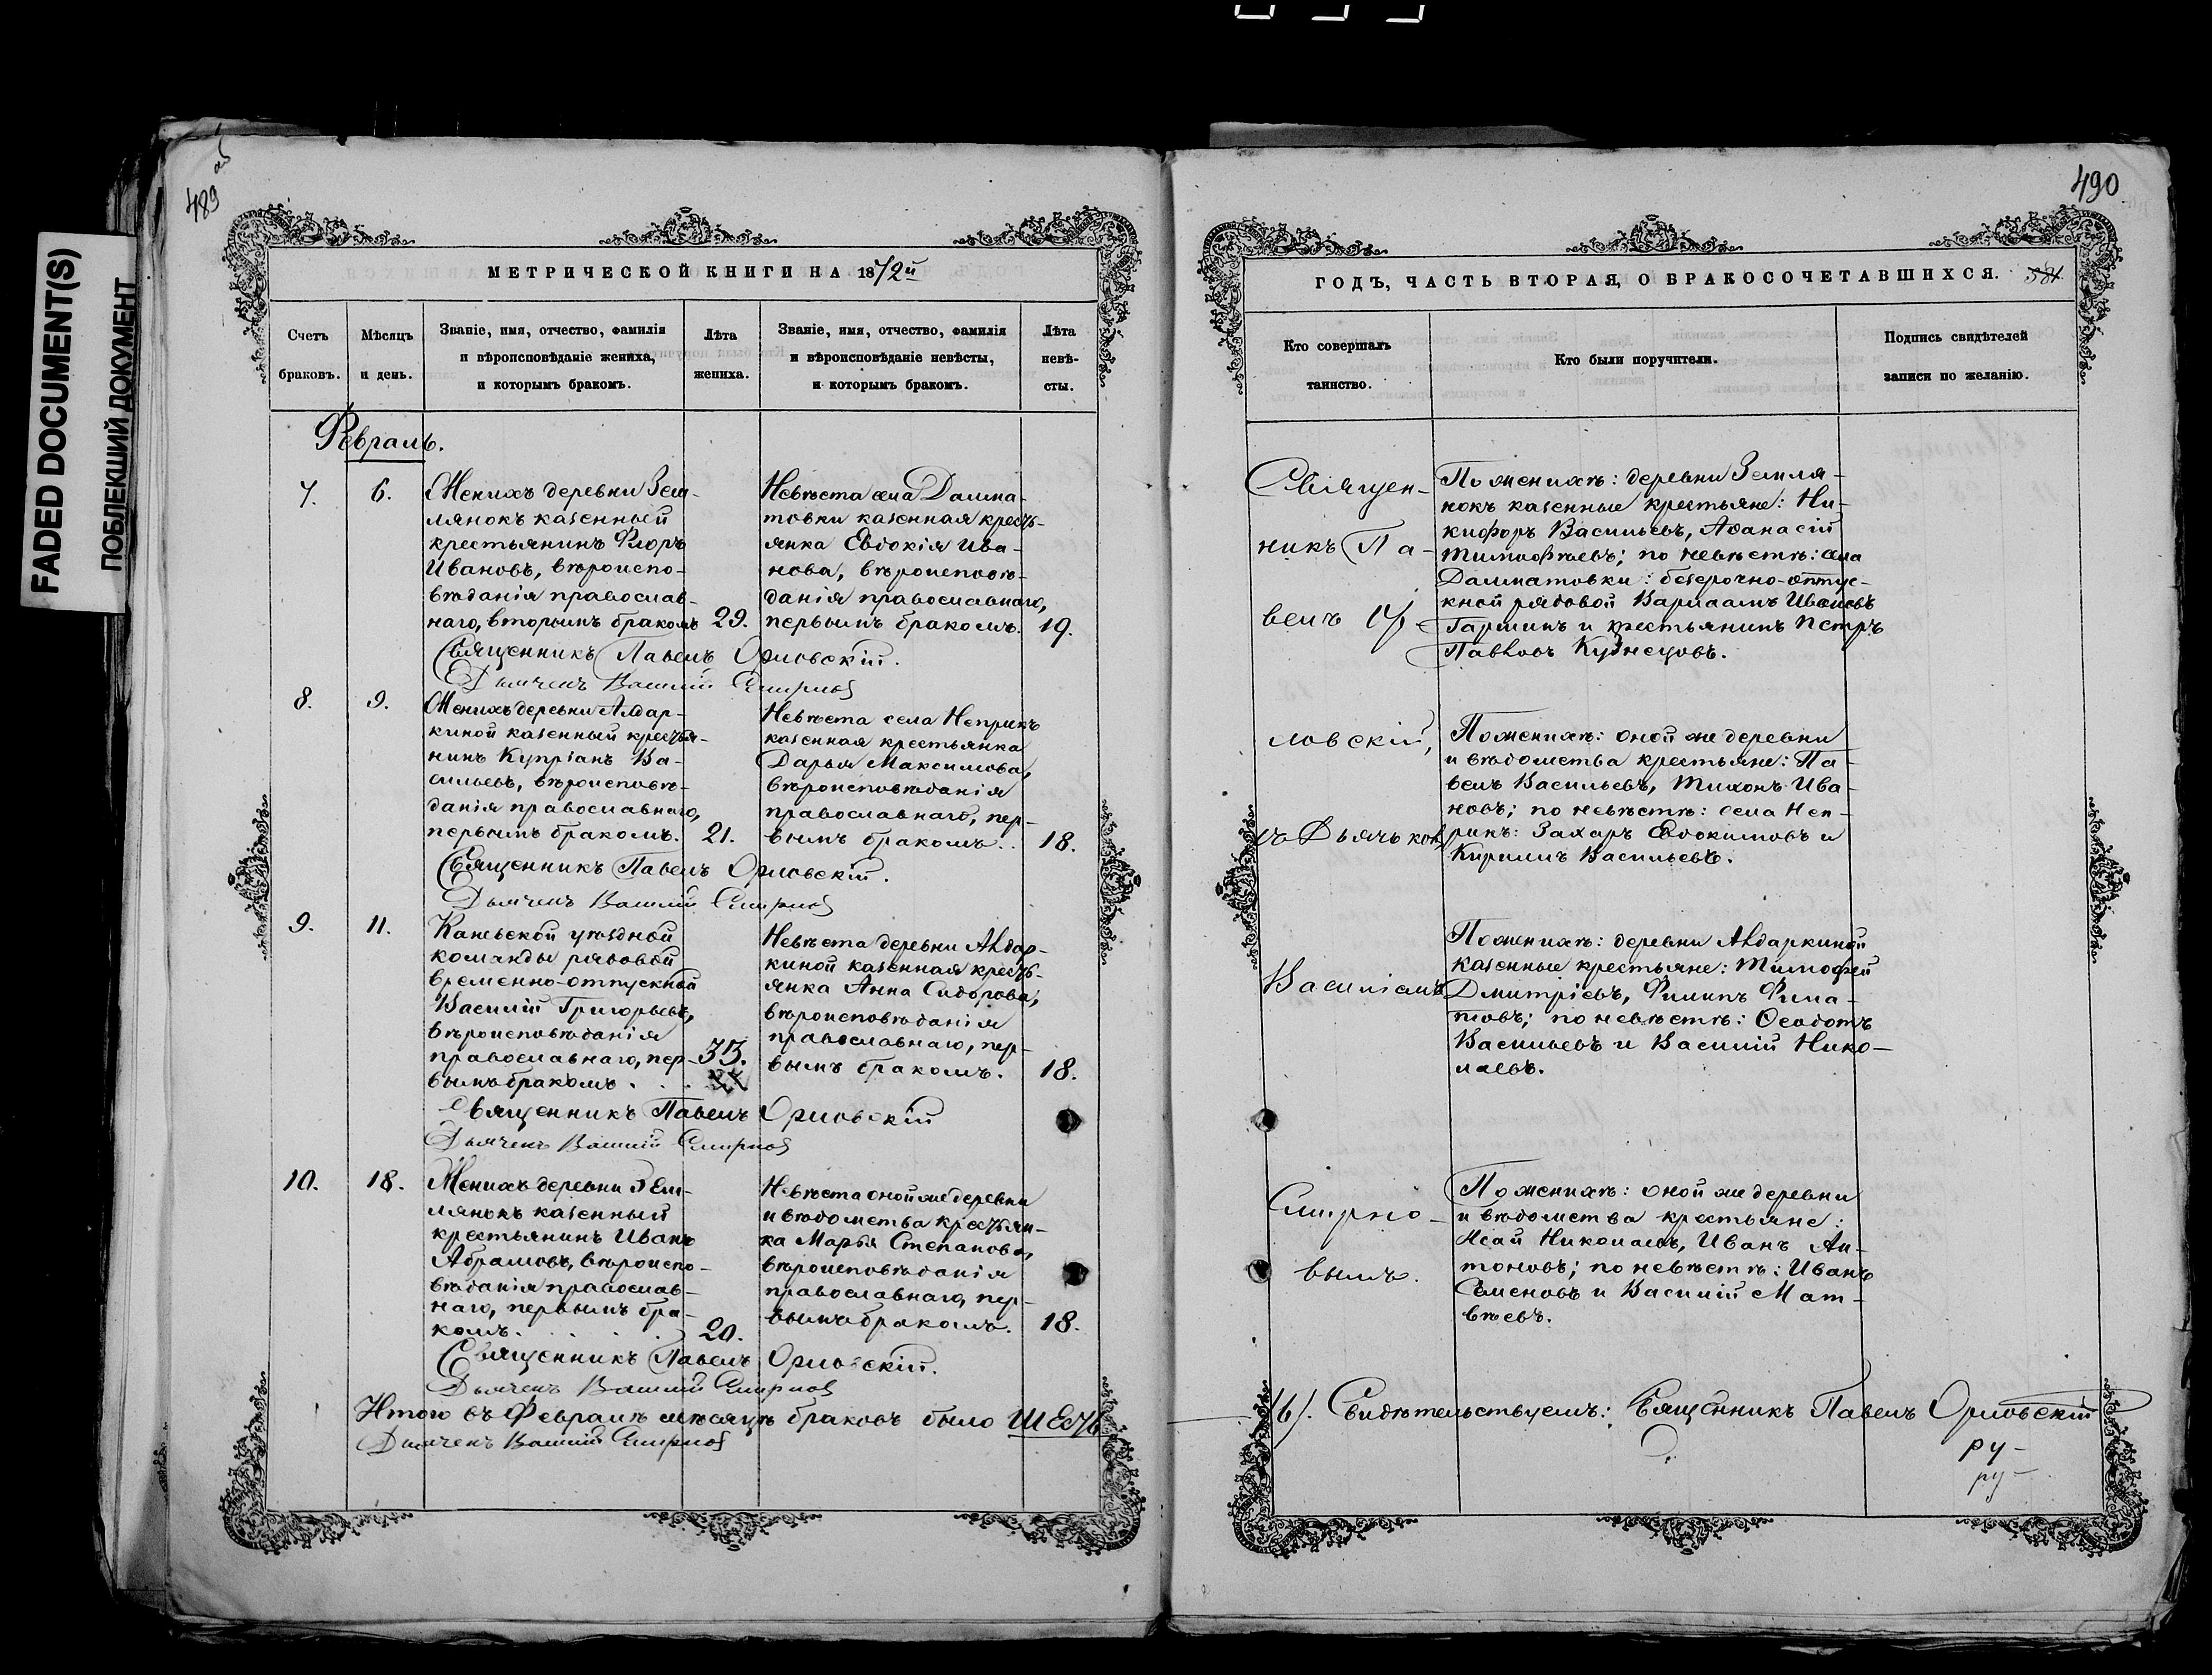 FADED DOCUMENT(S)
ПОБЛЕКШИЙ ДОКУМЕНТ
489 об
МЕТРИЧЕСКОЙ КНИГИ НА 1872й
Счетъ браковъ.
Мѣсяцъ и день.
Званіе, имя, отчество, фамилія
и вѣроисповѣданіе жениха,
и которымъ бракомъ.
Лѣта жениха.
Званіе, имя, отчество, фамилія
и вѣроисповѣданіе невѣсты,
и которымъ бракомъ.
Лѣта невѣ-
сты.
Февраль.
7.
6.
Женихъ деревни Зем-
лянокъ казенный
крестьянинъ Флоръ
Ивановъ, вѣроиспо-
вѣданія православ-
наго, вторымъ бракомъ
29.
Невѣста села Далма-
товки казенная кресть-
янка Евдокія Ива-
нова, вѣроисповѣ-
данія православнаго,
первымъ бракомъ.
19.
Священникъ Павелъ Орловскій.
Дьячекъ Василій Смирновъ
8.
9.
Женихъ деревни Алдар-
киной казенный крестья-
нинъ Купріанъ Ва-
сильевъ, вѣроисповѣ-
данія православнаго,
первымъ бракомъ.
21.
Невѣста села Неприкъ
казенная крестьянка
Дарья Максимова,
вѣроисповѣданія
православнаго, пер-
вымъ бракомъ..
18.
Священникъ Павелъ Орловскій.
Дьячекъ Василій Смирновъ
9.
11.
Каневской уѣздной
команды рядовой
временно-отпускной
Василій Григорьевъ,
вѣроисповѣданія
православнаго, пер-
вымъ бракомъ . . .
33.
Невѣста деревни Алдар-
киной казенная кресть-
янка Анна Сидорова,
вѣроисповѣданія
православнаго, пер-
вымъ бракомъ.
18.
Священникъ Павелъ Орловскій
Дьячекъ Василій Смирновъ
10.
18.
Женихъ деревни Зем-
лянокъ казенный
крестьянинъ Иванъ
Абрамовъ, вѣроиспо-
вѣданія православ-
наго, первымъ бра-
комъ. . . . .
20.
Невѣста оной же деревни
и вѣдомства крестьян-
ка Марья Степанова,
вѣроисповѣданія
православнаго, пер-
вымъ бракомъ.
18.
Священникъ Павелъ Орловскій.
Дьячекъ Василій Смирновъ
Итого въ Февралѣ мѣсяцѣ браковъ было шесть
Дьячекъ Василій Смирновъ
490
ГОДЪ, ЧАСТЬ ВТОРАЯ, О БРАКОСОЧЕТАВШИХСЯ.
Кто совершалъ
таинство.
Кто были поручители.
Подпись свидѣтелей
записи по желанію.
Священ-
никъ Па-
велъ Ор-
ловскій,
съ Дьячкомъ
Василіемъ
Смирно-
вымъ.
По женихѣ: деревни Земля-
нокъ казенные крестьяне: Ни-
кифоръ Васильевъ, Аѳанасій
Тимофѣевъ; по невѣстѣ: села
Далматовки: безсрочно-отпус-
кной рядовой Варлаамъ Ивановъ
Гаршинъ и крестьянинъ Петръ
Павловъ Кузнецовъ.
По женихѣ: оной же деревни
и вѣдомства крестьяне: Па-
велъ Васильевъ, Тихонъ Ива-
новъ; по невѣстѣ: села Неп-
рикъ: Захаръ Евдокимовъ и
Кирилъ Васильевъ.
По женихѣ: деревни Алдаркиной
казенные крестьяне: Тимофей
Дмитріевъ, Филипъ Фила-
товъ; по невѣстѣ: Ѳеодотъ
Васильевъ и Василій Нико-
лаевъ.
По женихѣ: оной же деревни
и вѣдомства крестьяне:
Исай Николаевъ, Иванъ Ан-
тоновъ; по невѣстѣ: Иванъ
Семеновъ и Василій Мат-
вѣевъ.
/6/. Свидѣтельствуемъ: Священникъ Павелъ Орловскій
ру-
ру-